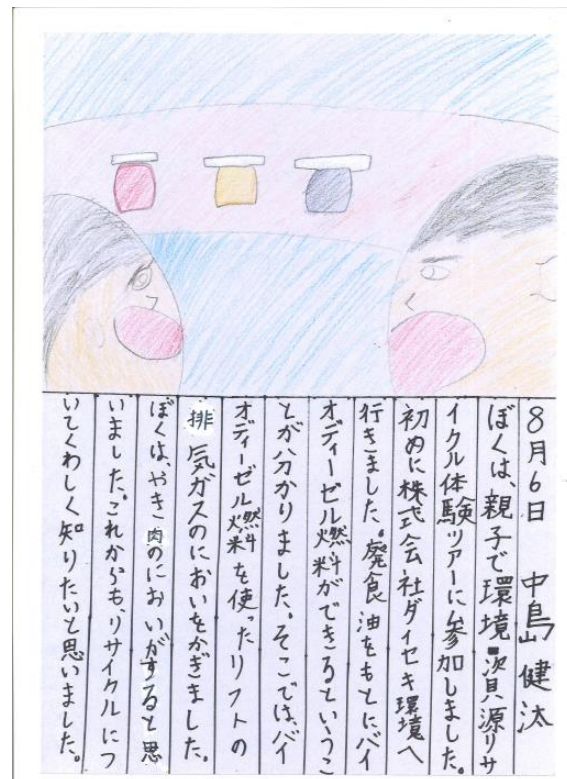 8月6日 中島 健汰
ぼくは、親子で環境・資源リサ
イクル体験ツアーに参加しました。
初めに株式会社ダイセキ環境へ
行きました。廃食油をもとにバイ
オディーゼル燃料ができるというこ
とが分かりました。そこでは、バイ
オディーゼル燃料を使ったリフトの
排気ガスのにおいをかぎました。
ぼくは、やき肉のにおいがすると思
いました。これからも、リサイクルにつ
いてくわしく知りたいと思いました。